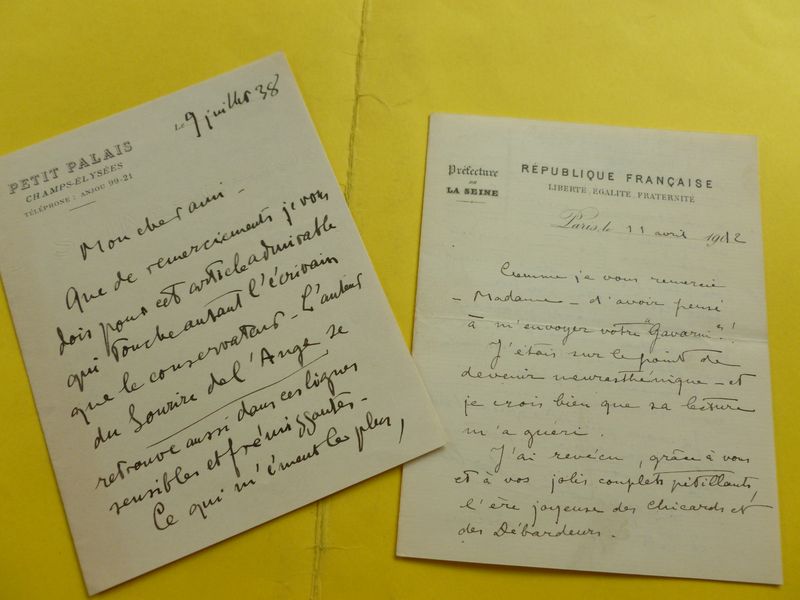 PETIT PALAIS
CHAMPS-ÉLYSÉES
TÉLÉPHONE : ANJOU 99-21
Le 9 juillet 38
Mon cher ami -
Que de remerciements je vous
dois pour cet article admirable
qui touche autant l'écrivain
que le conservateur - L'auteur
du Sourire de l'Ange se
retrouve aussi dans ces lignes
sensibles et frémissantes -
Ce qui m'émeut le plus,
Préfecture
DE
LA SEINE
RÉPUBLIQUE FRANÇAISE
LIBERTÉ, EGALITÉ, FRATERNITÉ
Paris, le 11 avril 1912
Comme je vous remercie
- Madame - d'avoir pensé
à m'envoyer votre "Gavarni"!
J'étais sur le point de
devenir neurasthénique - et
je crois bien que sa lecture
m'a guéri.
J'ai revécu, grâce à vous
et à vos jolis couplets pétillants,
l'ère joyeuse des Chicards et
des Débardeurs.